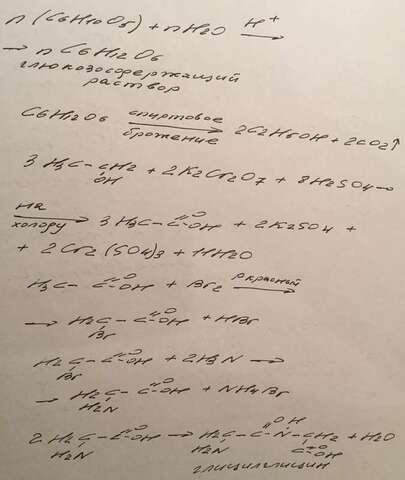 n (C6H10O5) + nH2O H+ →
→ n C6H12O6
глюкозосодержащий
раствор
C6H12O6 спиртовое брожение → 2C2H5OH + 2CO2↑
3 H3C - CH2 + 2K2Cr2O7 + 8H2SO4 →
OH
на холоду → 3 H3C - C=O OH + 2K2SO4 +
+ 2Cr2(SO4)3 + 11H2O
H3C - C=O OH + Br2 P красный →
→ H2C - C=O OH + HBr
Br
H2C - C=O OH + 2H3N →
Br
→ H2C - C=O OH + NH4Br
H2N
2 H2C - C=O OH → H2C - C=O - N H - CH2 + H2O
H2N H2N C=O OH
глицилглицин